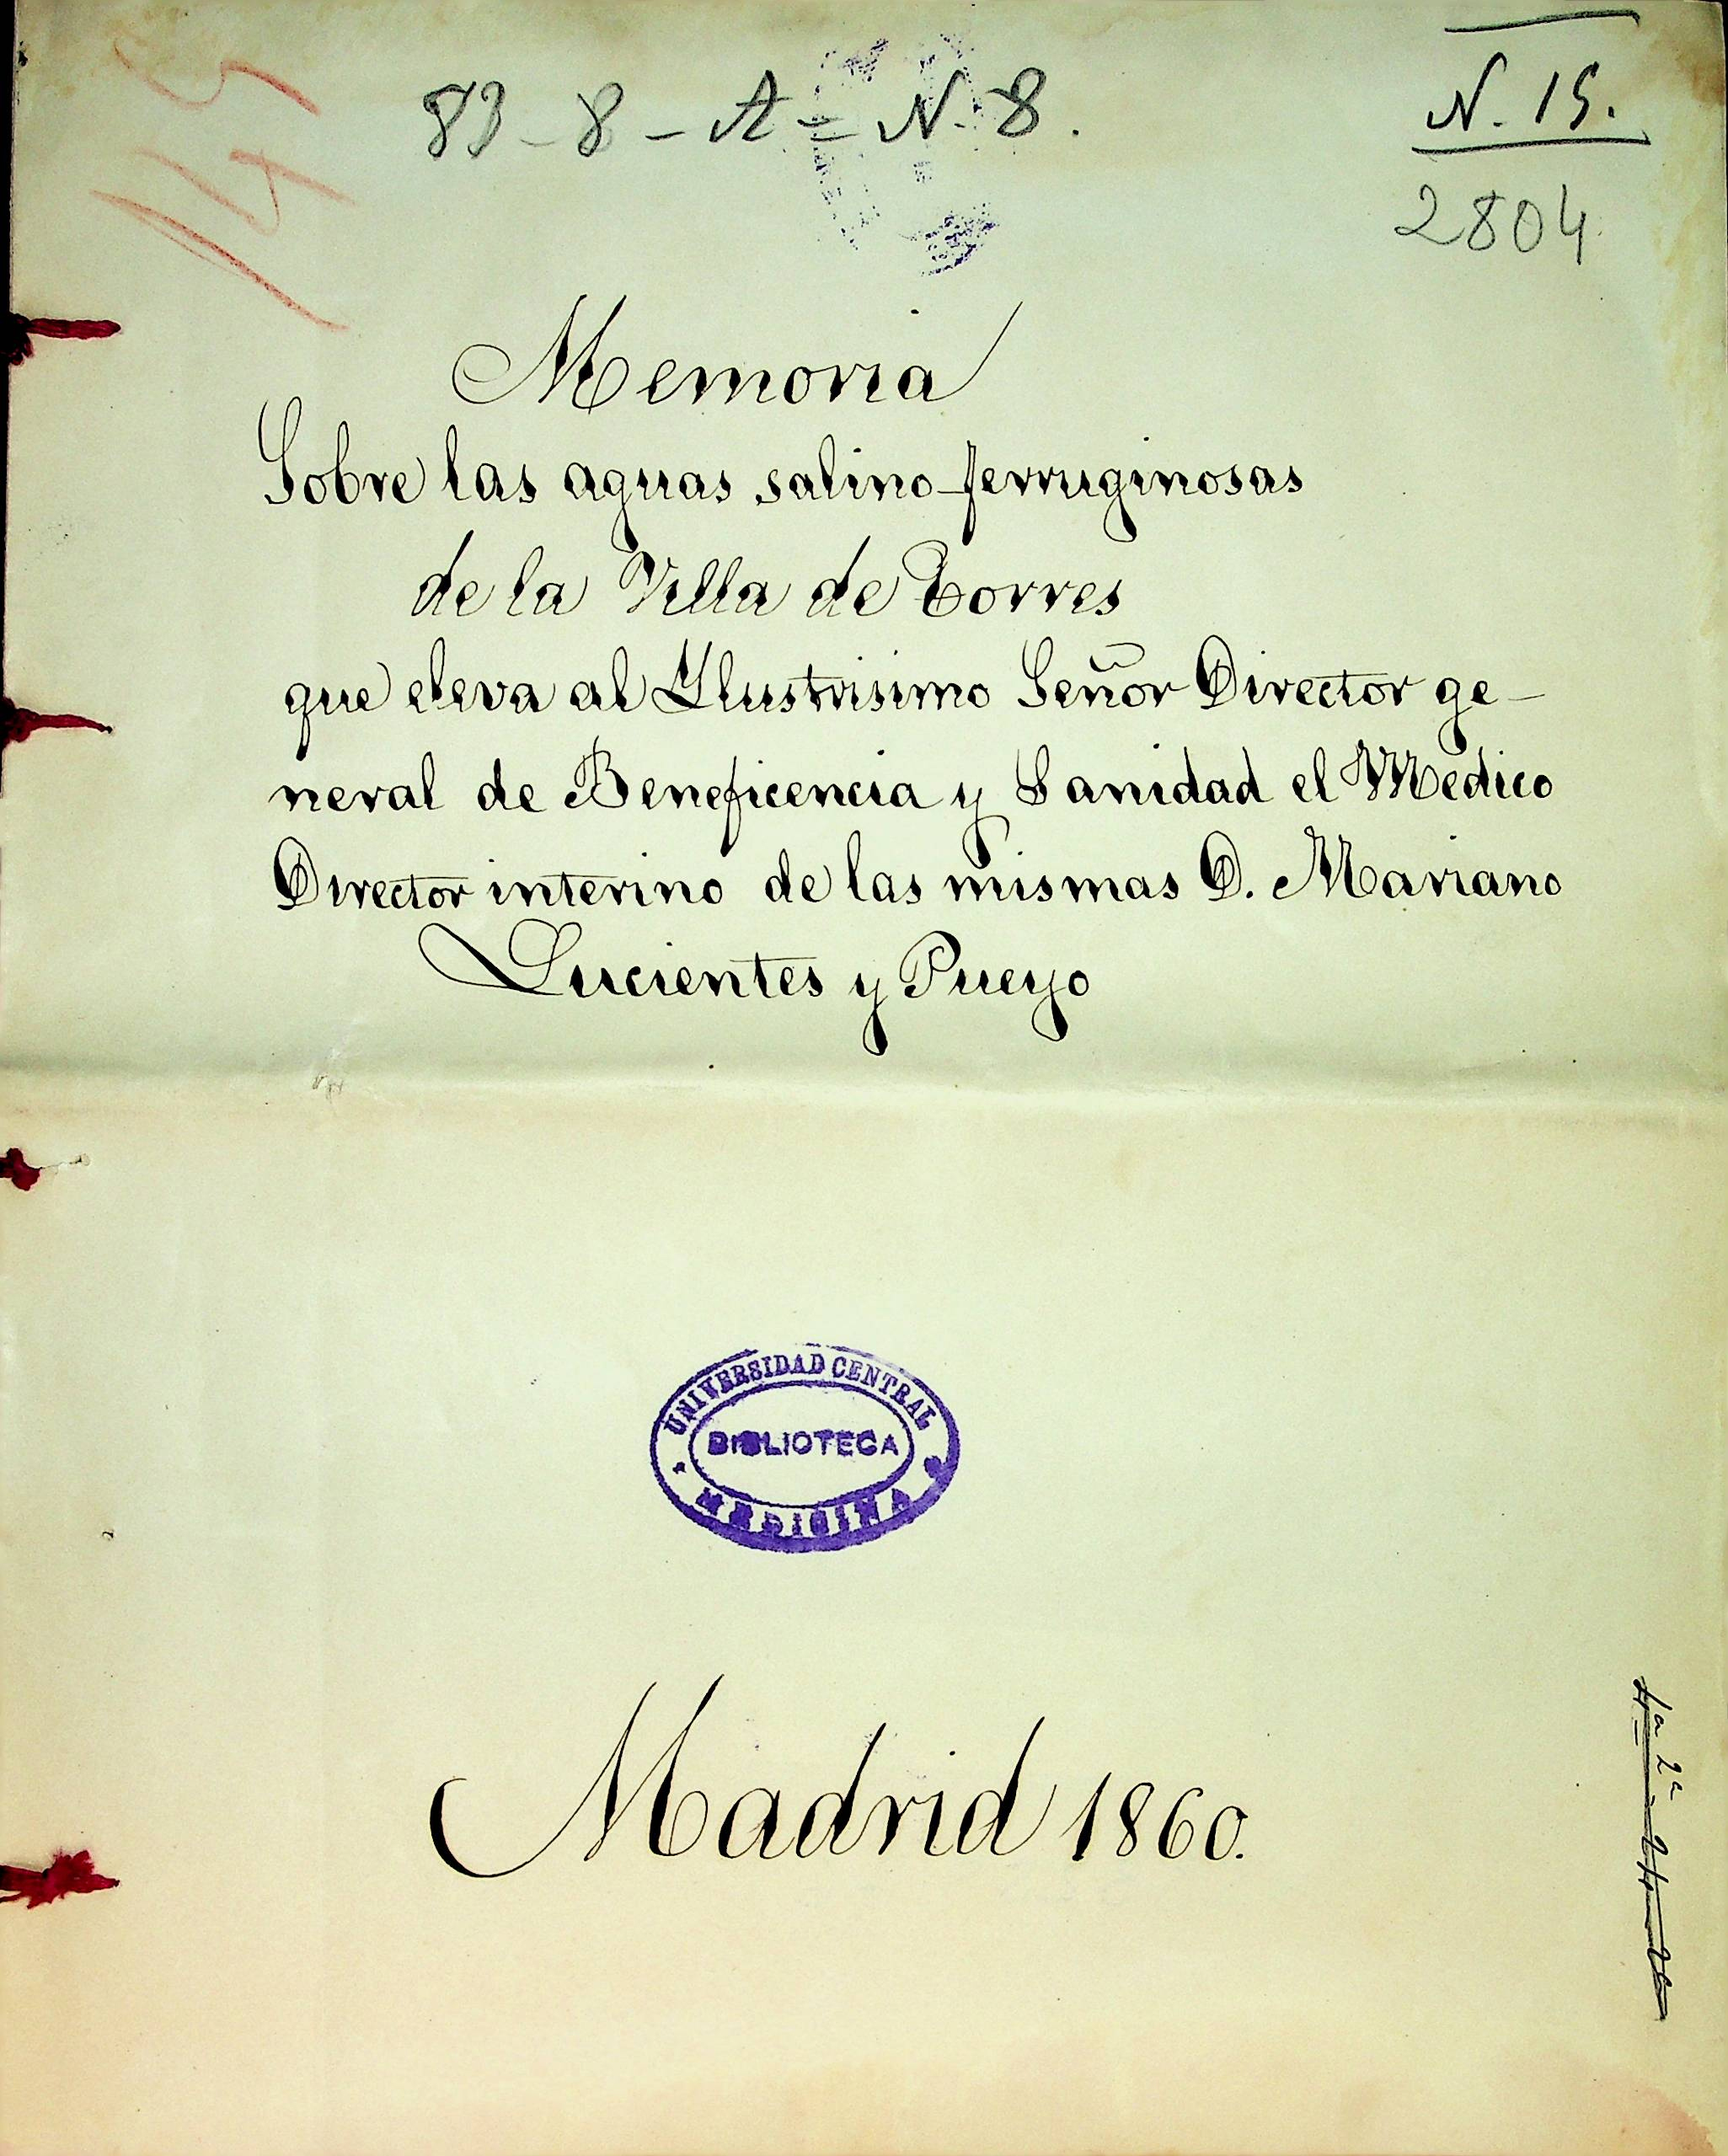 145
83-8-A-N.8.
N. 15.
2804
Memoria
Sobre las aguas salino-ferruginosas
de la Villa de Torres
que eleva al Ylustrisimo Señor Director ge-
neral de Beneficencia y Sanidad el Medico
Director interino de las mismas D. Mariano
Lucientes y Pueyo
UNIVERSIDAD CENTRAL
BIBLIOTECA
MEDICINA
Madrid 1860.